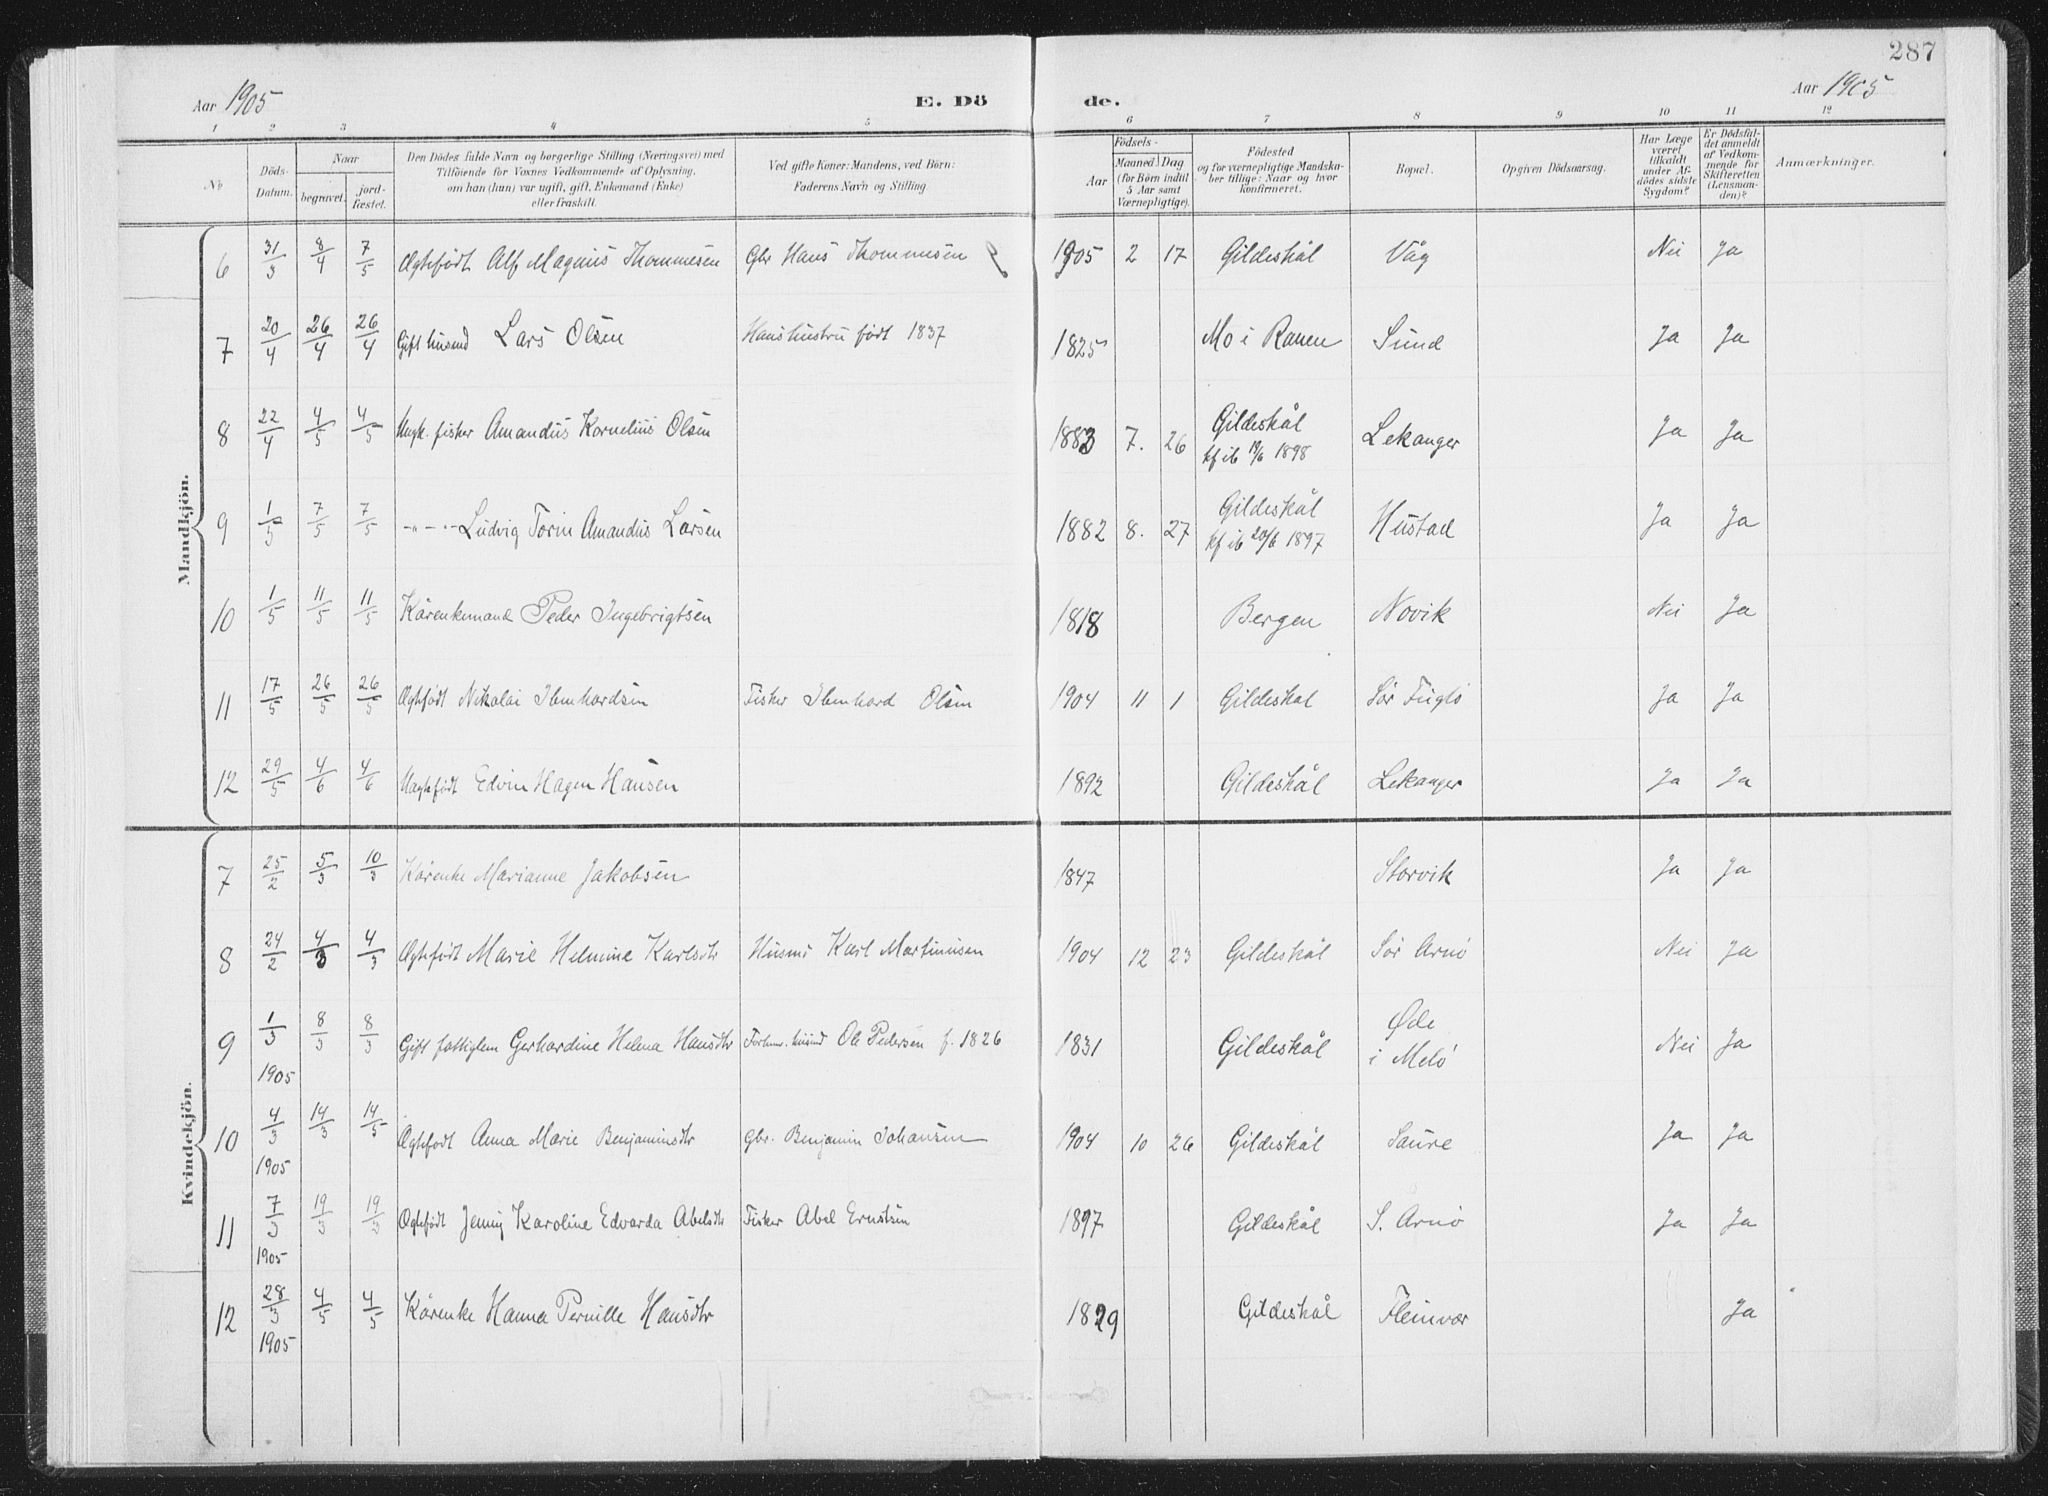 287
Aar 1905
E. Dö
de.
Aar 1905
1 2 3 4 5 6 7 8 9 10 11 12
No
Döds-Datum.
Naar
begravet.
jord-fæstet.
Den Dödes fulde Navn og borgerlige Stilling (Næringsvei) med
Tilföiende for Voxnes Vedkommende af Oplysning,
om han (hun) var ugift, gift, Enkemand (Enke)
eller fraskilt.
Ved gifte Koner: Mandens, ved Börn:
Faderens Navn og Stilling
Födsels-
Aar
Maaned Dag
(for Börn indtil
5 Aar samt
Værnepligtige).
Födested
og for værnepligtige Mandska-
ber tillige: Naar og hvor
konfirmeret.
Bopæl.
Opgiven Dödsaarsag.
Har Læge
været
tilkaldt
under Af-
dödes sidste
Sygdom?
Er Dödsfal-
det anmeldt
af Vedkom-
mende for
Skifteretten
(Lensman-
den)?
Anmærkninger.
Mandkjön.
6 31/3 8/4 7/5 Ægtefödt Alf Magnus Thommesen Gbr Hans Thommesen 1905 2 17 Gildeskål Våg Nei Ja
7 20/4 26/4 26/4 Gift husmd Lars Olsen Hans hustru født 1837 1825 Mo i Ranen Sund Ja Ja
8 22/4 4/5 4/5 Ungk. fisker Amandus Kornelius Olsen 1883 7. 26 Gildeskål Lekanger Ja Ja
kf ib 19/6 1898
9 1/5 7/5 7/5 -"- -"- Ludvig Torin Amandus Larsen 1882 8. 27 Gildeskål Hustad Ja Ja
kf ib 20/6 1897
10 1/5 11/5 11/5 Kårenkemand Peder Ingebrigtsen 1818 Bergen Novik Nei Ja
11 17/5 26/5 26/5 Ægtefödt Nikolai Ibenhardsen Fisker Ibenhard Olsen 1904 11 1 Gildeskål Sör Fuglö Ja Ja
12 29/5 4/6 4/6 Uægtefödt Edvin Hagen Hansen 1892 Gildeskål Lekanger Ja Ja
Kvindekjön.
7 25/2 5/3 10/3 Kårenke Marianne Jakobsen 1847 Storvik Ja Ja
8 24/2 4/3 4/3 Ægtefödt Marie Helmine Karlsdtr Husmd Karl Martinusen 1904 12 23 Gildeskål Sör Arnö Nei Ja
9 1/3 8/3 8/3 Gift fattiglem Gerhardine Helena Hansdtr Forhenv. husmd Ole Pedersen f. 1826 1831 Gildeskål Øde i Melö Nei Ja
1905
10 4/3 14/3 14/5 Ægtefödt Anna Marie Benjaminsdtr gbr. Benjamin Johansen 1904 10 26 Gildeskål Saure Ja Ja
1905
11 7/3 19/3 19/3 Ægtefödt Jenny Karoline Edvarda Abelsdtr Fisker Abel Ernstsen 1897 Gildeskål S. Arnö Ja Ja
1905
12 28/3 4/5 4/5 Kårenke Hanna Pernille Hansdtr 1829 Gildeskål Fleinvær Ja
1905